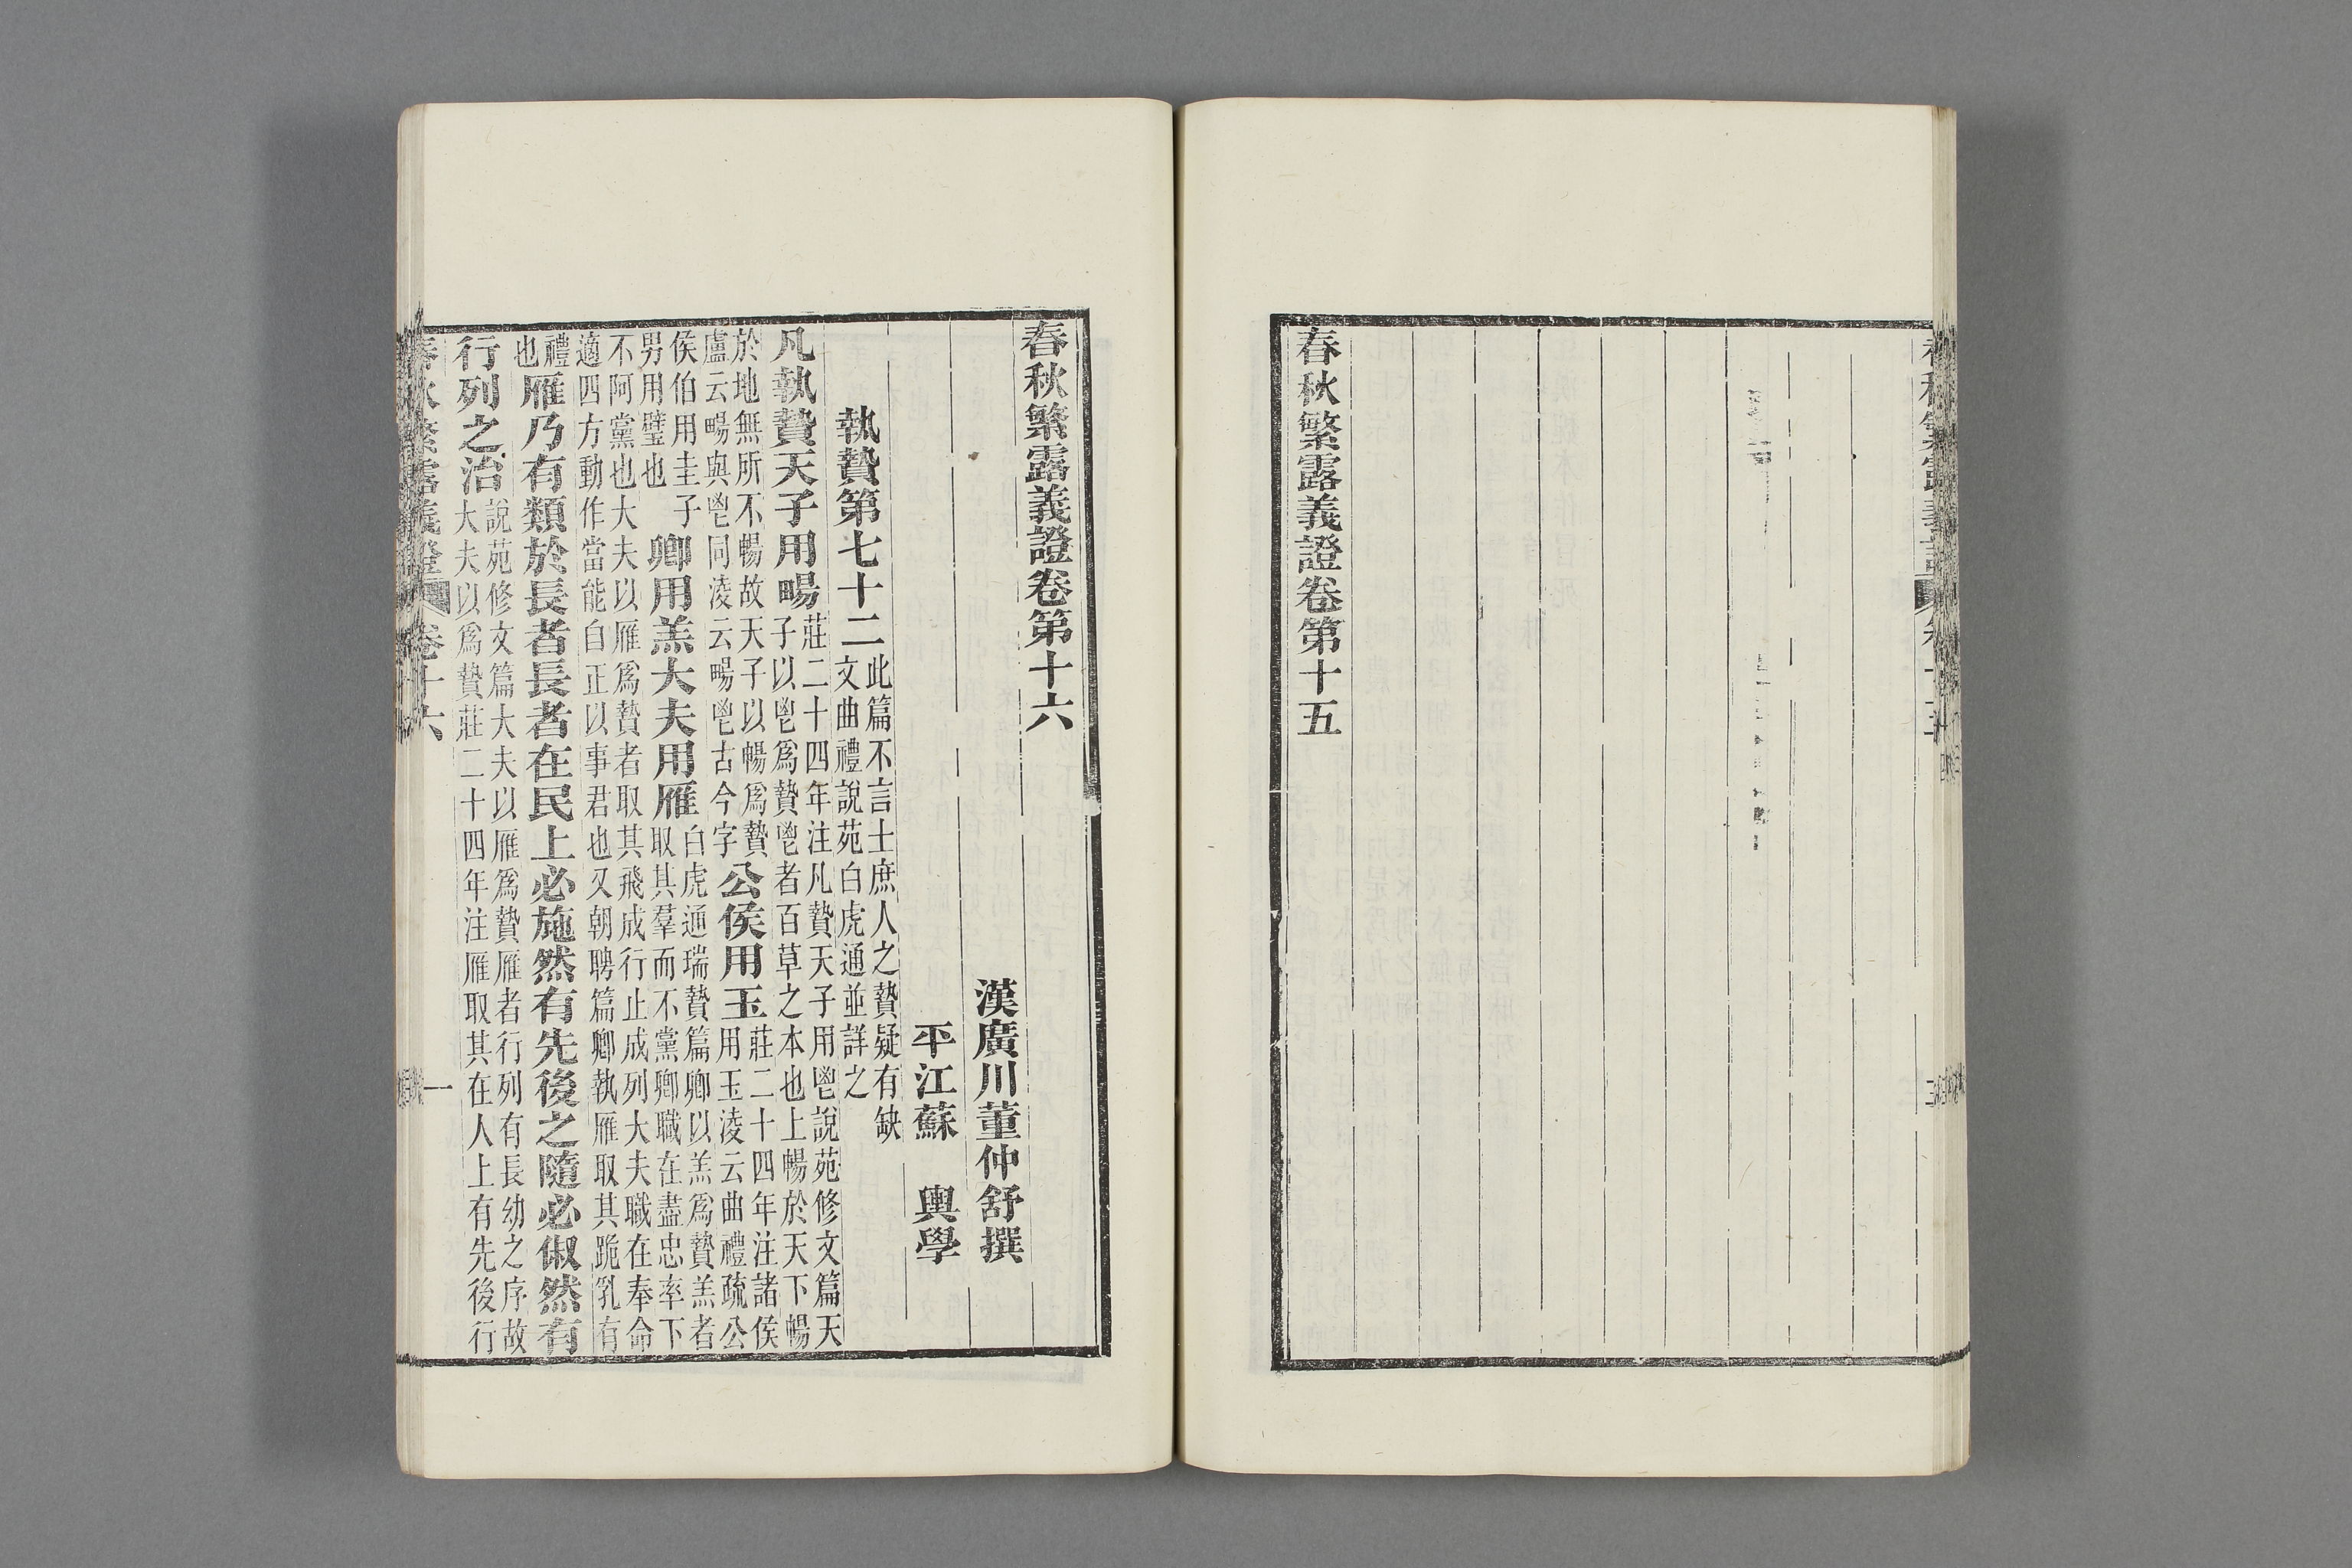 春秋繁露義證卷第十五
春秋繁露義證卷第十六
漢廣川董仲舒撰
平江蘇 輿學
執贄第七十二
此篇不言士庶人之贄疑有缺
文曲禮說苑白虎通並詳之
凡執贄天子用暢
莊二十四年注凡贄天子用鬯說苑修文篇天
子以鬯爲贄鬯者百草之本也上暢於天下暢
於地無所不暢故天子以暢爲贄
盧云暢與鬯同淩云暢鬯古今字
公侯用玉
莊二十四年注諸侯
用玉淩云曲禮疏公
侯伯用圭子
男用璧也
卿用羔大夫用雁
白虎通瑞贄篇卿以羔爲贄羔者
取其羣而不黨卿職在盡忠率下
不阿黨也大夫以雁爲贄者取其飛成行止成列大夫職在奉命
適四方動作當能自正以事君也又朝聘篇卿執雁取其跪乳有
禮
也
雁乃有類於長者長者在民上必施然有先後之隨必俶然有
行列之治
說苑修文篇大夫以雁爲贄雁者行列有長幼之序故
大夫以爲贄莊二十四年注雁取其在人上有先後行
春秋繁露義證 卷十六 一